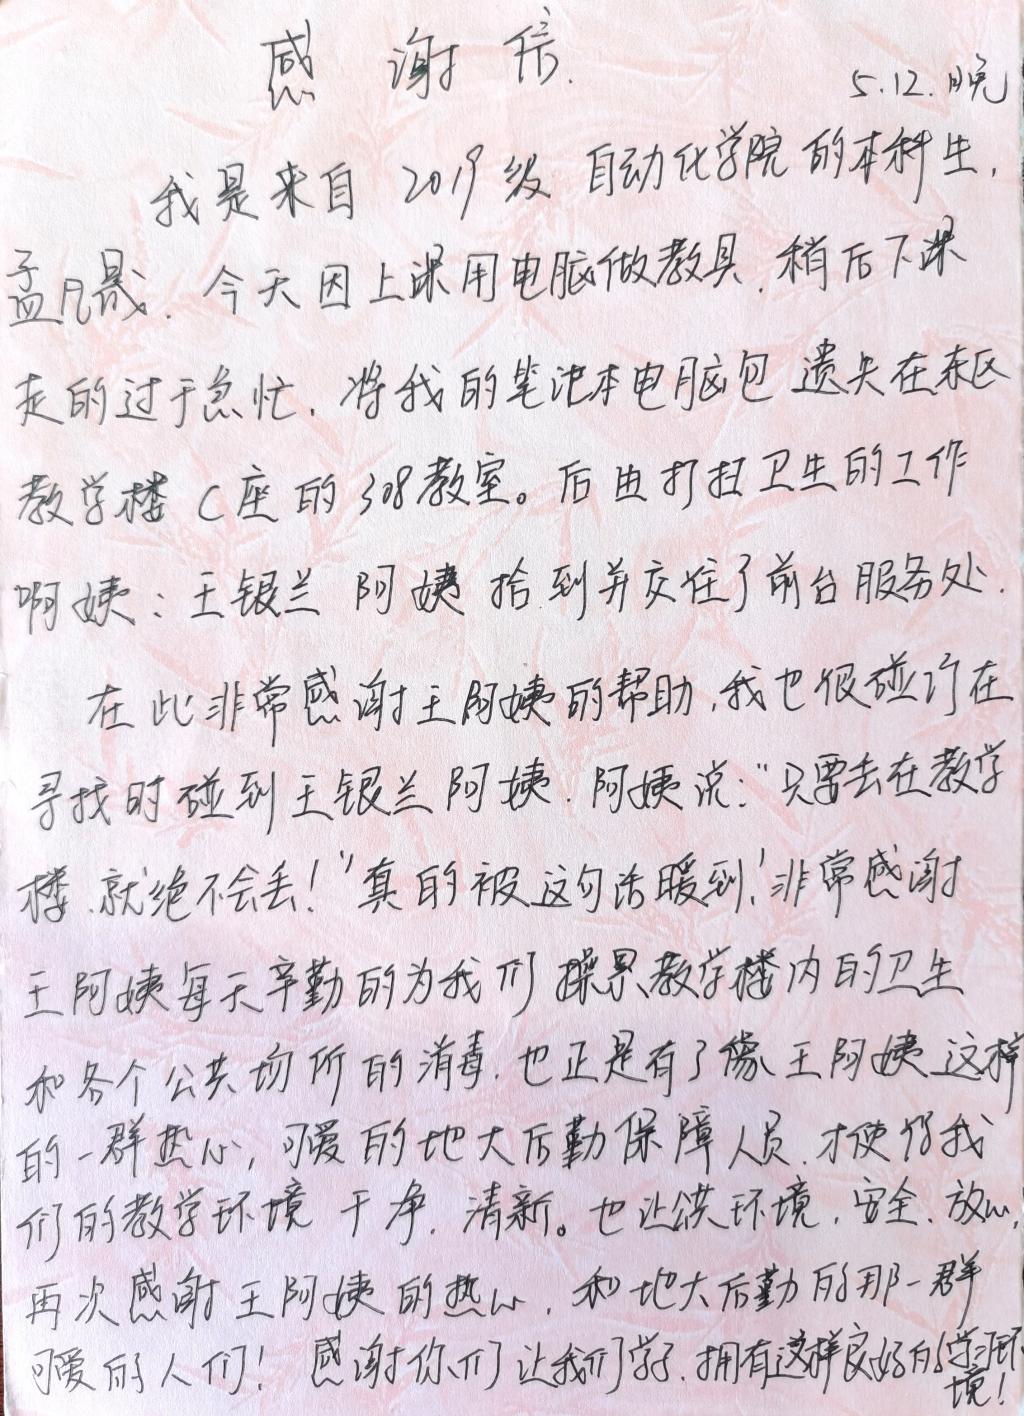 感谢信.
5.12.晚
我是来自 2019级 自动化学院的本科生,
孟凡晟. 今天因上课用电脑做教具, 稍后下课
走的过于急忙, 将我的笔记本电脑包 遗失在东区
教学楼 C座的308教室。后由打扫卫生的工作
啊姨: 王银兰 阿姨 拾到并交往了前台服务处.
在此非常感谢王阿姨的帮助,我也很碰巧在
寻找时碰到王银兰阿姨. 阿姨说:"只要丢在教学
楼.就绝不会丢!"真的被这句话暖到!非常感谢
王阿姨每天辛勤的为我们操累教学楼内的卫生
和各个公共场所的消毒. 也正是有了像王阿姨这样
的一群热心, 可爱的地大后勤保障人员. 才使得我
们的教学环境 干净. 清新。也让公共环境. 安全. 放心,
再次感谢王阿姨的热心, 和地大后勤的那一群
可爱的人们! 感谢你们让我们学子. 拥有这样良好的学习环
境!